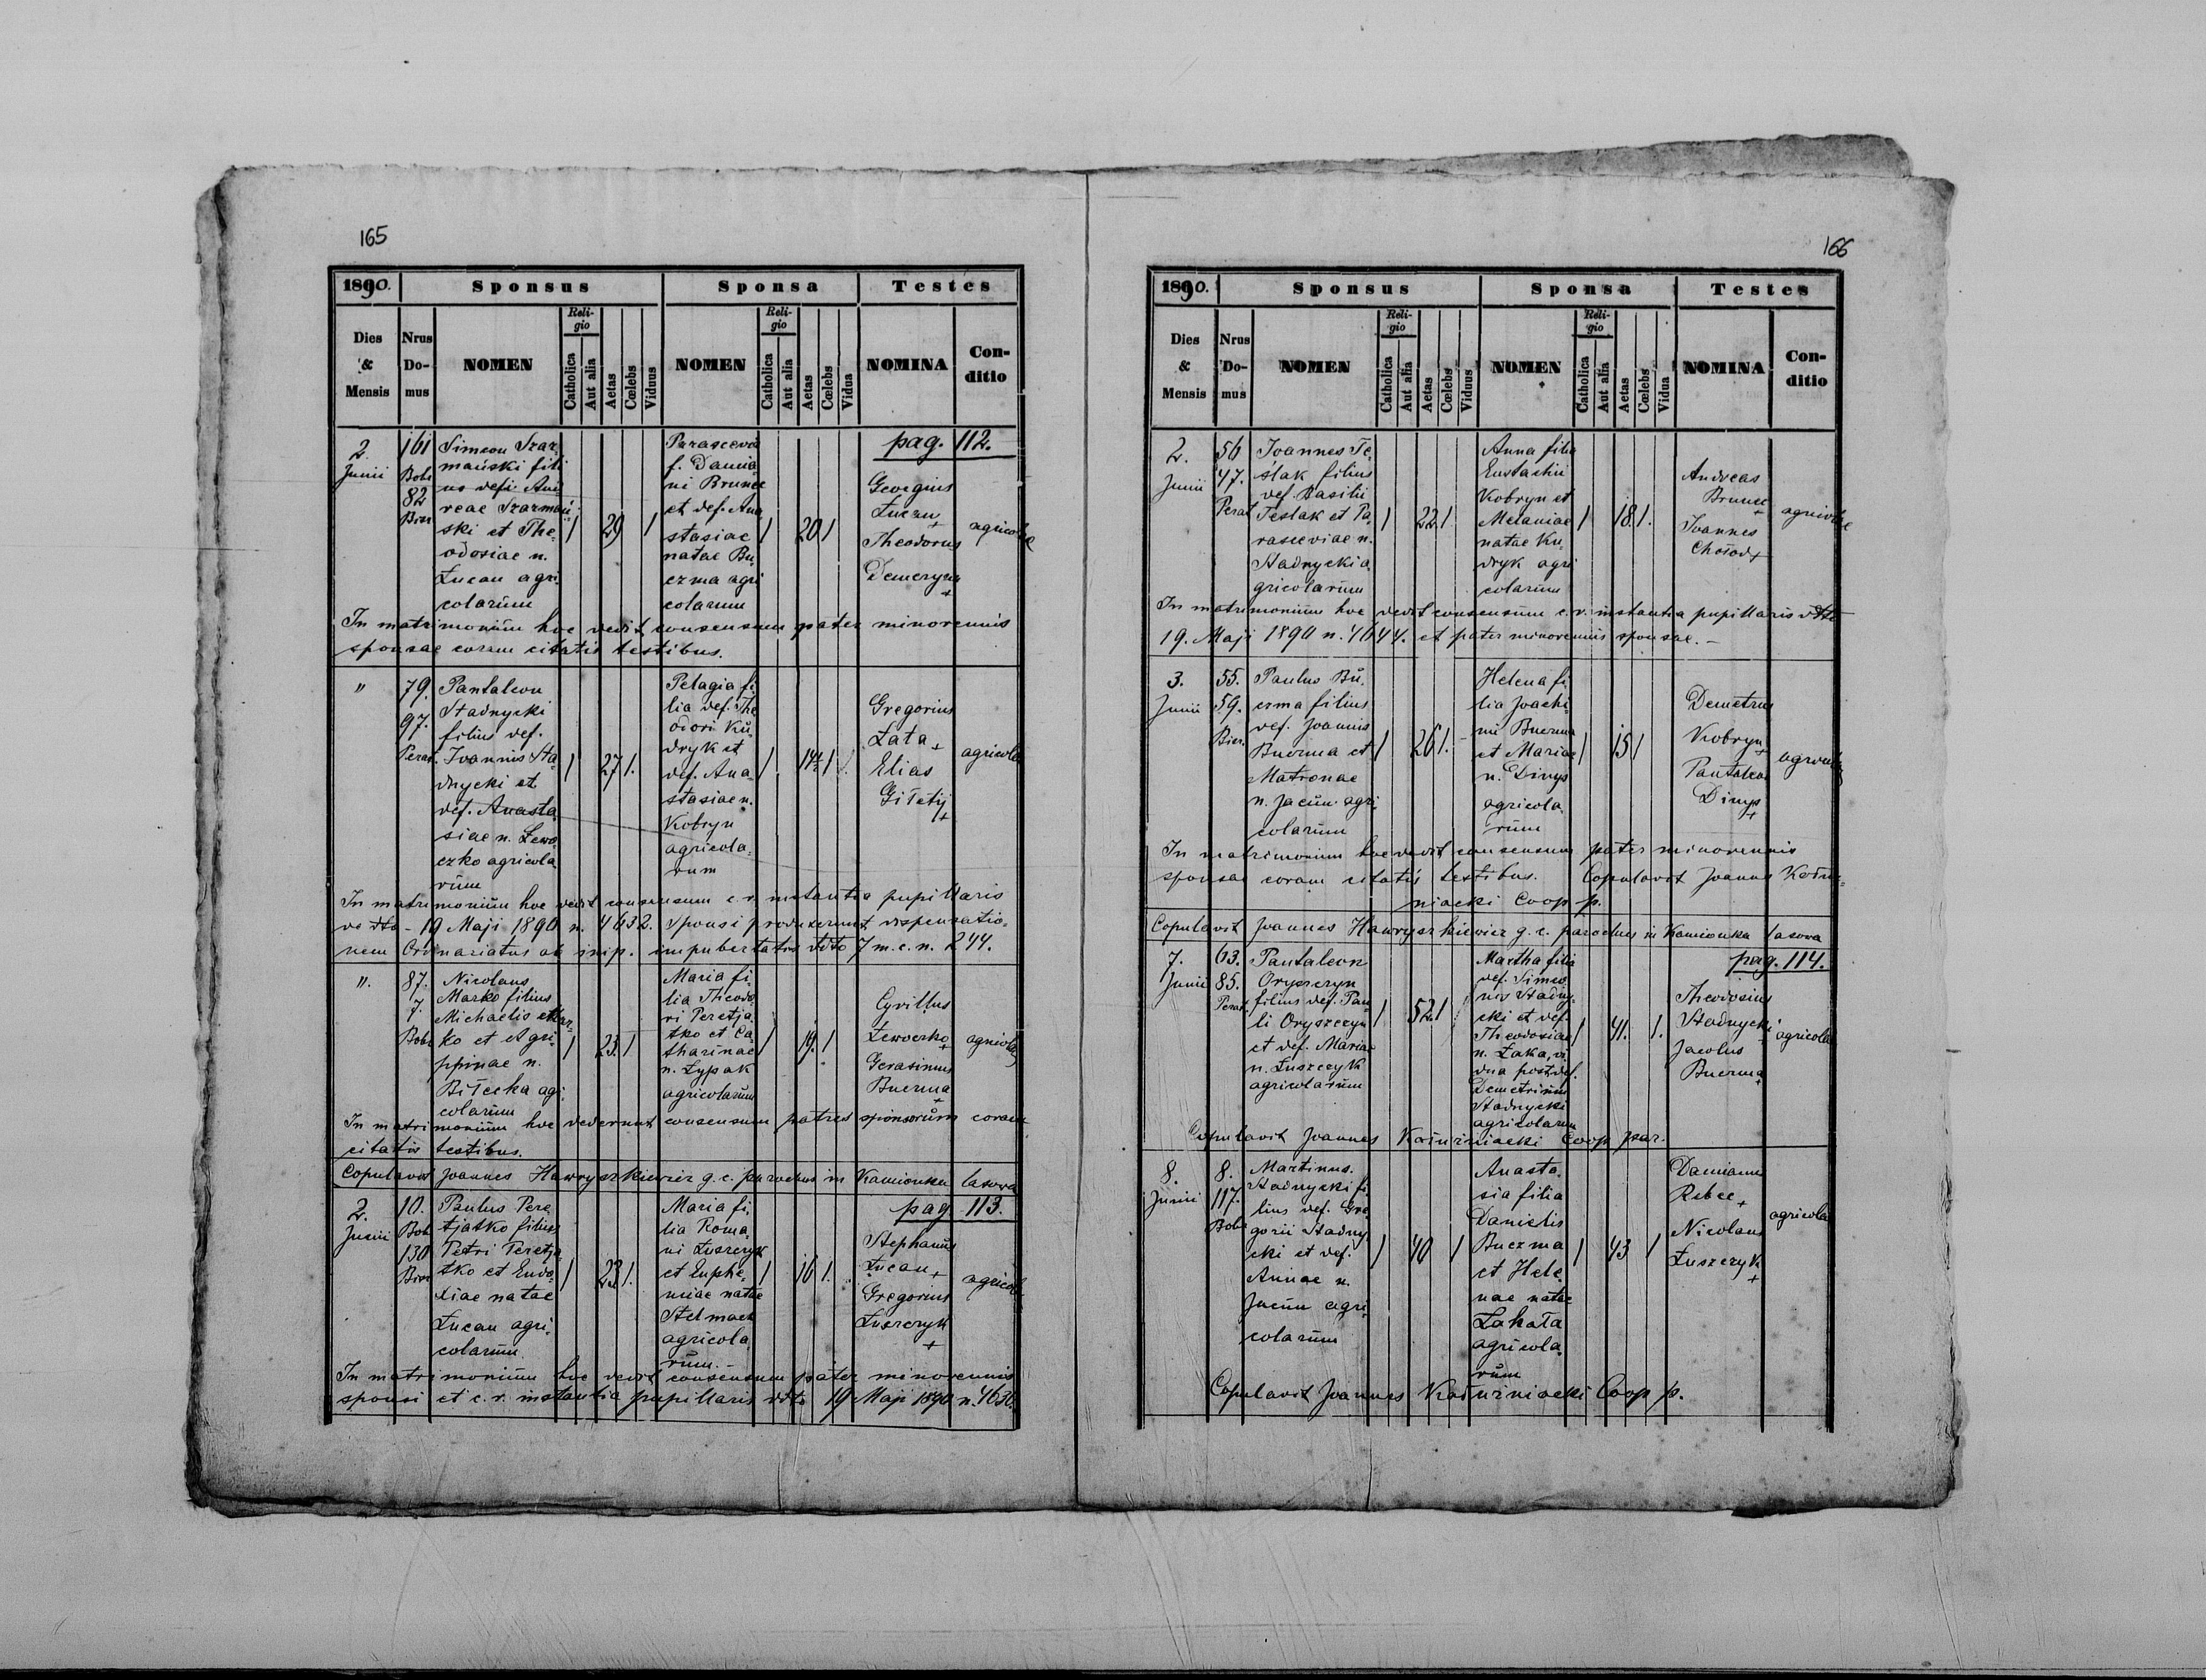 165
1890.
Sponsus
Sponsa
Testes
Dies & Mensis
Nrus Domus
NOMEN
Religio
Catholica
Aut alia
Aetas
Cœlebs
Viduus
NOMEN
Religio
Catholica
Aut alia
Aetas
Cœlebs
Vidua
NOMINA
Conditio
pag. 112.
2.
Junii
161
Bobr
82
Bier
Simeon Szar-
mański fili
us def. And
reae Szarmań-
ski et The-
odosiae n.
Łucau agri
colarum
29
Parascevia
f. Damia-
ni Brunec
et def. Ana
stasiae
natae Bu-
czma agri
colarum
20
Georgius
Łucau +
Theodorus
Demczyna +
agricolae
In matrimonium hoc dedit consensum pater minorennis
sponsae coram citatis testibus.
"
79.
97.
Perat.
Pantaleon
Stadnycki
filius def.
Ioannis Sta-
dnycki et
def. Anasta-
siae n. Lewo-
czko agricola
rum
27
Pelagia fi-
lia def. The
odori Ku-
dryk et
def. Ana-
stasiae n.
Kobryn
agricola-
rum
14½
Gregorius
Łata +
Elias
Giłetij +
agricolae
In matrimonium hoc dedit consensum c. r. instantia pupillaris
de dto - 19 Maji 1890 n. 4632. Sponsi produxerunt dispensatio-
nem Ordinariatus ab imp. impubertatis ddto 7 m. c. n. 244.
".
87.
7.
Bobr
Nicolaus
Marko filius
Michaelis Mar-
ko et Agri-
ppinae n.
Biłecka agri-
colarum
23.
Maria fi-
lia Theodo-
ri Peretja-
tko et Ca-
tharinae
n. Łypak
agricolarum
19.
Cyrillus
Lewoczko +
Gerasimus
Buczma +
agricolae
In matrimonium hoc dederunt consensum patres sponsorum coram
citatis testibus.
Copulavit Joannes Hawryszkiewicz g. c. parochus in Kamionka lasowa
pag. 113.
2.
Junii
10.
Bobr
130
Bier
Paulus Pere-
tjatko filius
Petri Peretja
tko et Eudo-
xiae natae
Łucau agri-
colarum
23
Maria fi-
lia Roma-
ni Łuszczyk
et Euphe-
miae natae
Stelmach
agricola
rum. -
16
Stephanus
Łucau +
Gregorius
Łuszczyk +
agricolae
In matrimonium hoc dedit consensum pater minorennis
sponsi et c. r. instantia pupillaris ddto 19 Maji 1890 n. 4630.
166
1890.
Sponsus
Sponsa
Testes
Dies & Mensis
Nrus Domus
NOMEN
Religio
Catholica
Aut alia
Aetas
Cœlebs
Viduus
NOMEN
Religio
Catholica
Aut alia
Aetas
Cœlebs
Vidua
NOMINA
Conditio
2.
Junii
56
47.
Perat
Joannes Te-
slak filius
def. Basilii
Teslak et Pa-
rasceviae n.
Stadnycki a
gricolarum
22
Anna filia
Eustachii
Kobryn et
Melaniae
natae Ku-
dryk agri
colarum
18
Andreas
Brunec +
Joannes
Chołod +
agricolae
In matrimonium hoc dedit consensum c. r. instantia pupillaris ddto
19. Maji 1890 n. 4644. et pater minorennis sponsae. -
3.
Junii
55.
59.
Bier.
Paulus Bu-
czma filius
def. Joannis
Buczma et
Matronae
n. Jacun agri
colarum
26
Helena fi
lia Joachi-
mi Buczma
et Mariae
n. Dinys
agricola
rum
15
Demetrius
Kobryn +
Pantaleon
Dinys +
agricolae
In matrimonium hoc dedit consensum pater minorennis
sponsae coram citatis testibus. Copulavit Joannes Kołuź-
niacki Coop p.
Copulavit Joannes Hawryszkiewicz g. c. parochus in Kamionka lasowa
pag. 114.
7.
Junii
63.
85.
Perat
Pantaleon
Oryszczyn
filius def. Pau
li Oryszczyn
et def. Mariae
n. Łuszczyk
agricolarum
52
Martha filia
def. Simeo
nis Stadny-
cki et def.
Theodosiae
n. Łaka, vi-
dua post def.
Demetrium
Stadnycki
agricolarum
41.
Theodosius
Stadnycki
Jacobus
Buczma +
agricolae
Copulavit Joannes Kołuźniacki Coop par.
8.
Junii
8.
117.
Bobr
Martinus
Stadnycki fi-
lius def. Gre
gorii Stadny-
cki et def.
Annae n.
Jacun agri-
colarum
40
Anasta-
sia filia
Danielis
Buczma
et Hele-
nae natae
Łahała
agricola-
rum
43
Damianus
Rebec +
Nicolaus
Łuszczyk +
agricolae
Copulavit Joannes Kołuźniacki Coop p.